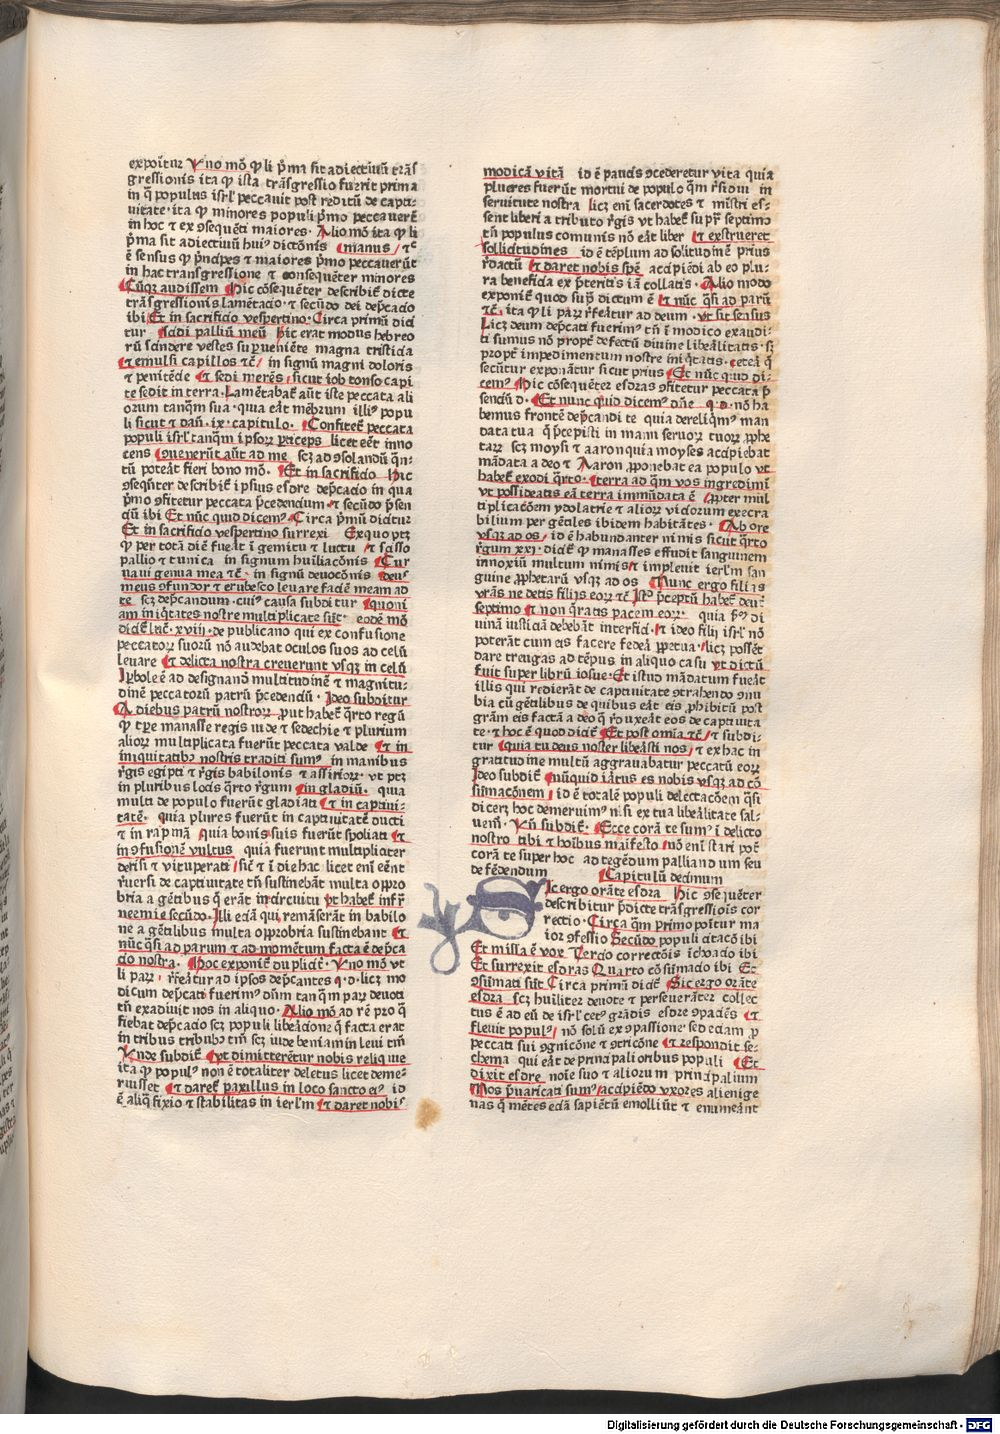 expoitur Uno mō ꝙ li p̄ma sit adiectiuū trās
gressionis ita ꝙ ista trāsgressio fuerit prima
in q̄ populus isrl̓ peccauit post reditū de capti-
uitate · ita ꝙ minores populi p̄mo peccauerūt
in hoc et ex ꝯsequēti maiores · Alio mō ita ꝙ li
p̄ma sit adiectiuū huiꝰ dictōnis manus ⁊c̄
ē sensus ꝙ p̄ncipes ⁊ maiores p̄mo peccauerūt
in hac transgressione ⁊ consequēter minores
Cūqꝫ audissem Hic cōsequēter describit̄ dicte
trāsgressionis lamētacio · ⁊ secūdo dei dep̄cacio
ibi Et in sacrificio vespertino · Circa primū dici
tur scidi palliū meū Hic erat modus hebreo
rū scindere vestes superueniēte magna tristicia
⁊ emulsi capillos ⁊c̄ in signū magni doloris
et penitēcie Et sedi merēs sicut iob tonso capi
te sedit in terra · Lamētabat̄ aūt iste peccata ali
orum tanqm̄ sua · qua eāt mēbrum illiꝰ popu
li sicut ⁊ dan̄ · ix · capitulo · Confitet̄ peccata
populi isrl̓ tanqm̄ ipsoꝝ particeps licet eēt inno
cens Queuerūt aūt ad me scꝫ ad ꝯsolandū q̄n-
tū poteāt fieri bono mō · Et in sacrificio Hic
ꝯseqn̄ter describit̄ ipsius esdre dep̄cacio in qua
p̄mo ꝯfitetur peccata p̄cedencium · ⁊ secūdo p̄sen
ciū ibi Et nūc quid dicemꝰ · Circa p̄mū dicitur
Et in sacrificio vespertino surrexi Ex quo ptꝫ
ꝙ per totā diē fueāt ī gemitu ⁊ luctu et scisso
pallio ⁊ tunica in signum huiliacōnis Cur
uaui genua mea ⁊c̄ · in signū deuocōnis deus
meus ꝯfundor ⁊ erubesco leuare faciē meam ad
te scꝫ dep̄candum · cuiꝰ causa subditur quoni
am iniq̄tates nostre multiplicate sūt · eodē mō
dicit̄ luc̄ · xviij · de publicano qui ex confusione
peccatoꝝ suorū nō audebat oculos suos ad celū
leuare Et delicta nostra creuerunt vsqꝫ in celū
Ip̄bole ē ad designandū multitudinē ⁊ magnitu-
dinē peccatorū patrū p̄cedenciū · Ideo subditur
A diebus patrū nostroꝝ prout habet̄ q̄rto regū
ꝙ tp̄re manasse regis iude ⁊ sedechie ⁊ plurium
alioꝝ multiplicata fuerūt peccata valde et in
iniquitatibꝰ nostris traditi sumꝰ in manibus
r̄gis egipti ⁊ r̄gis babilonis ⁊ assirioꝝ · vt ptꝫ
in pluribus locis q̄rto r̄gum in gladiū · quia
multi de populo fuerūt gladiati et in captiui-
tatē · quia plures fuerūt in captiuitatē ducti
⁊ in rapinā quia bonis suis fuerūt spoliati et
in ꝯfusionē vultus quia fuerunt multipliciter
derisi ⁊ vituperati sic̄ ⁊ ī die hac licet eni eēnt
r̄uersi de captiuitate tn̄ sustinebāt multa oppro
bria a gētibus q̄ erāt in circuitu vt habet̄ infr̄
neemie secūdo · Illi eciā qui remāserāt in babilo
ne a gētilibus multa opprobria sustinebant et
nūc q̄si ad parum ⁊ ad momētum facta ē dep̄ca
cio nostra · Hoc exponit̄ duplicit̄ · Uno mō vt
li paꝝ r̄ferātur ad ipsos dep̄cantes q · d · licꝫ mo
dicum dep̄cati fuerimꝰ dn̄m tanqm̄ paꝝ deuoti
tn̄ exaudiuit nos in aliquo · Alio mō ad rē pro q̄
fiebat dep̄cacio scꝫ populi libeācione q̄ facta erat
in tribus tribubꝰ tm̄ scꝫ iude beniamin leui tm̄
Unde subdit̄ vt dimitterētur nobis reliquie
ita ꝙ populꝰ non ē totaliter deletus licet deme-
ruisset et daret̄ paxillus in loco sancto eiꝰ id
ē aliq̄ fixio ⁊ stabilitas in ierl̓m et daret nobis
modicā vitā id ē paucis ꝯcederetur vita quia
plures fuerūt mortui de populo q̄m r̄sidui in
seruitute nostra licꝫ eni sacerdotes ⁊ mīstri es-
sent liberi a tributo r̄gis vt habet̄ supr̄ septimo
tn̄ populus comunis nō eāt liber et extrueret
sollicitudines id ē tēplum ad solitudinē prius
r̄dactū et daret nobis spē accipiēdi ab eo plu-
ra beneficia ex p̄teritis iā collatis · Alio modo
exponit̄ quod sup̄ dictum ē et nūc q̄si ad parū
⁊c̄ ita ꝙ li paꝝ r̄feratur ad deum · vt sit sensus
Licꝫ deum dep̄cati fuerimꝰ tn̄ ī modico exaudi-
ti sumus nō propt̄ defectū diuine libealitatis · sꝫ
propt̄ impedimentum nostre iniq̄tatis · cetea q̄
secūtur exponātur sicut prius Et nūc quid di-
cemꝰ Hic cōsequēter esdras ꝯfitetur peccata p̄
senciū d · Et nunc quid dicemꝰ dn̄e q · d · nō ha
bemus frontē dep̄candi te quia dereliqmꝰ man
data tua q̄ p̄cepisti in manu seruoꝝ tuoꝝ ꝓphe
taꝝ scꝫ moysi ⁊ aaron quia moyses accipiebat
mādata a deo ⁊ Aaron ꝓponebat ea populo vt
habet̄ exodi q̄rto · terra ad qm̄ vos ingredimī
vt possideatis eā terra immūdata ē ꝓpter mul
tiplicacōem ydolatrie ⁊ alioꝝ viciorum execra
bilium per gētiles ibidem habitātes · Ab ore
vsqꝫ ad os id ē habundanter nimis sicut q̄rto
r̄gum xxj · dicit̄ ꝙ manasses effudit sanguinem
innoxiū multum nimis ⁊ impleuit ierl̓m san
guine ꝓphetarū vsqꝫ ad os Nunc ergo filias
vrās ne detis filijs eoꝝ ⁊c̄ Istᵈ p̄ceptū habet̄ deut̄
septimo et non q̄ratis pacem eoꝝ quia sᵐ di
uinā iusticiā debebāt interfici · ⁊ ideo filij isrl̓ nō
poterāt cum eis facere fedeā ꝑpetua licꝫ possēt
dare treugas ad tēpus in aliquo casu vt dictū
fuit super librū iosue · Et istud mādatum fueāt
illis qui redierāt de captiuitate ꝯtrahendo ꝯnu
bia cū gētilibus de quibus eāt eis ꝓhibitū post
grām eis factā a deo q̄ r̄duxeāt eos de captiuita
te · ⁊ hoc ē quod dicit̄ Et post omīa ⁊c̄ ⁊ subdi-
tur quia tu deus noster libeāsti nos ⁊ ex hac in
gratitudine multū aggrauabatur peccatū eoꝝ
Ideo subdit̄ nūquid irātus es nobis vsqꝫ ad cō
sūmacōnem id ē totalē populi delectacōem q̄si
dicerꝫ hoc demeruimꝰ nisi ex tua libealitate sal-
ueīm̄ · Un̄ subdit̄ · Ecce corā te sumꝰ ī delicto
nostro tibi ⁊ hoībus maifesto nō eni stari pot̄
corā te super hoc ad tegēdum palliandum seu
defēdendum Capitulū decimum
Sic ergo orāte esdra Hic ꝯsequēter
describitur p̄dicte trāsgressiois cor
rectio · Circa qm̄ primo poītur ma
ior ꝯfessio Secūdo populi citacō ibi
Et missa ē vox Tercio correctōis ichoacio ibi
Et surrexit esdras Quarto cōsūmacio ibi Et
ꝯsūmati sūt Circa primū dicit̄ Sic ergo orāte
esdra scꝫ huiliter deuote ⁊ perseuerāter collec
tus ē ad eū de isrl̓ cetꝰ grādis esdre ꝯpaciēs et
fleuit populꝰ nō solū ex ꝯpassione sed eciam ꝓ
peccati sui ꝯgnicōne ⁊ ꝯtricōne et respondit se-
chema qui eāt de principalioribus populi Et
dixit esdre noīe suo ⁊ aliorum principalium
Nos p̄uaricati sumꝰ accipiēdo vxores alienige
nas q̄ mētes eciā sapiētū emolliūt ⁊ eneruāt
Digitalisierung gefördert durch die Deutsche Forschungsgemeinschaft - DFG